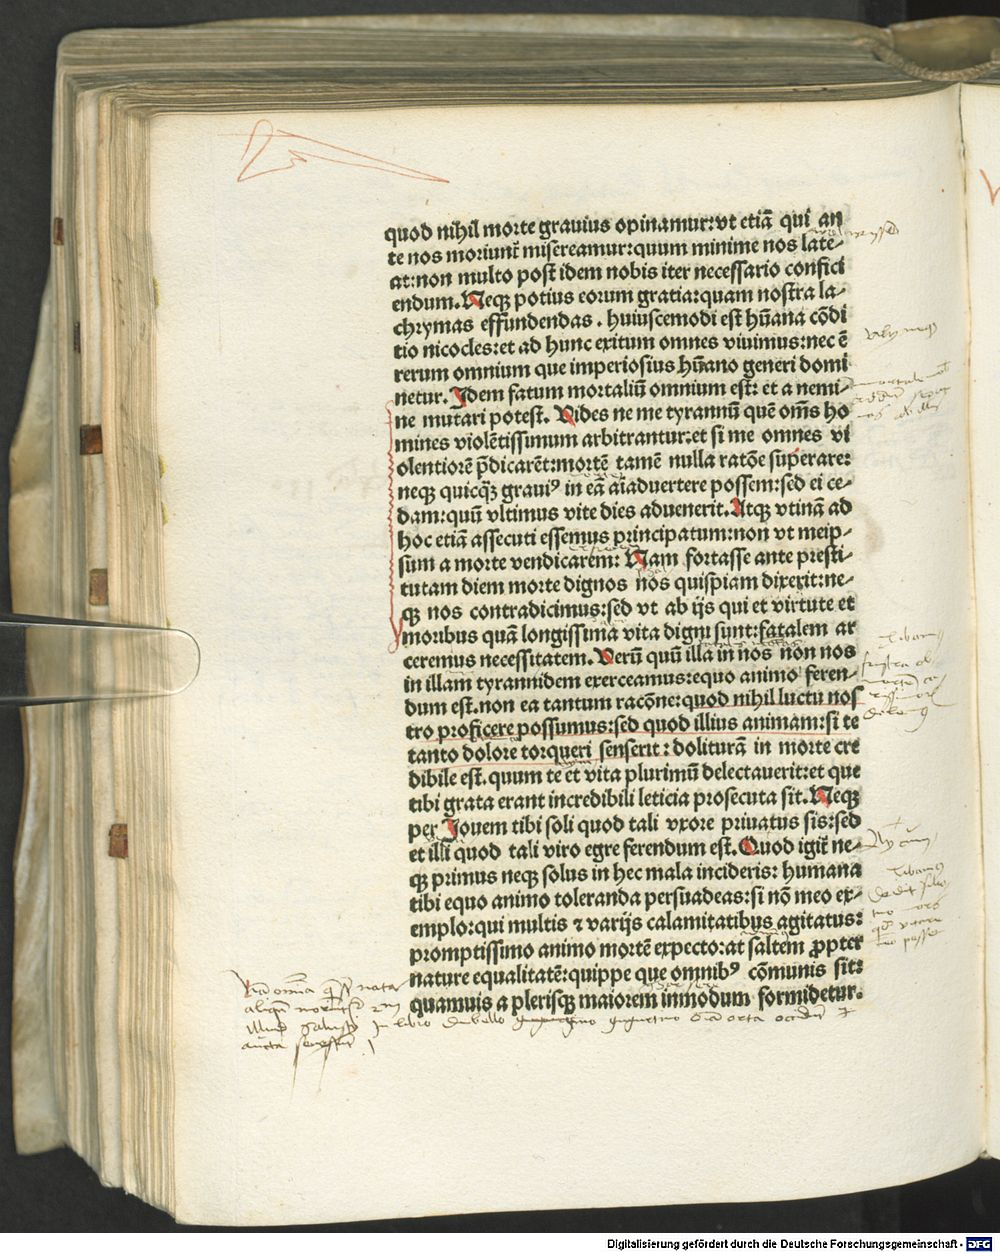 quod nihil morte grauius opinamur:vt etiã qui an
te nos moriunt᷑ misereamur:quum minime nos late-
at:non multo post idem nobis iter necessario confici
endum. Neqꝫ potius eorum gratia:quam nostra la-
chrymas effundendas. huiuscemodi est hũana cõdi
tio nicocles:et ad hunc exitum omnes viuimus:nec ẽ
rerum omnium que imperiosius hũano generi domi
netur. Idem fatum mortaliũ omnium est: et a nemi-
ne mutari potest. Vides ne me tyrannũ quẽ om̃s ho
mines violẽtissimum arbitrantur:et si me omnes vi
olentiorẽ p̃dicarẽt:mortẽ tamẽ nulla ratõe superare:
neqꝫ quicqꝫ̃ grauiꝰ in eã aĩaduertere possem:sed ei ce-
dam:quũ vltimus vite dies aduenerit. Atqꝫ vtinã ad
hoc etiã assecuti essemus principatum:non vt meip-
sum a morte vendicarem: Nam fortasse ante presti-
tutam diem morte dignos nos quispiam dixerit:ne-
qꝫ nos contradicimus:sed vt ab ijs qui et virtute et
moribus quã longissima vita digni sunt:fatalem ar
ceremus necessitatem. Verũ quũ illa in nos non nos
in illam tyrannidem exerceamus:equo animo feren-
dum est.non ea tantum racõne:quod nihil luctu nos
tro proficere possumus:sed quod illius animam:si te
tanto dolore torqueri senserit: doliturã in morte cre
dibile est. quum te et vita plurimũ delectauerit:et que
tibi grata erant incredibili leticia prosecuta sit. Neqꝫ
per Iouem tibi soli quod tali vxore priuatus sis:sed
et illi quod tali viro egre ferendum est. Quod igit᷑ ne-
qꝫ primus neqꝫ solus in hec mala incideris: humana
tibi equo animo toleranda persuadeas:si nõ meo ex-
emplo:qui multis ⁊ varijs calamitatibus agitatus:
promptissimo animo mortẽ expecto:at saltem ꝓpter
nature equalitatẽ:quippe que omnibꝰ cõmunis sit:
quamuis a plerisqꝫ maiorem inmodum formidetur.
Digitalisierung gefördert durch die Deutsche Forschungsgemeinschaft - DFG